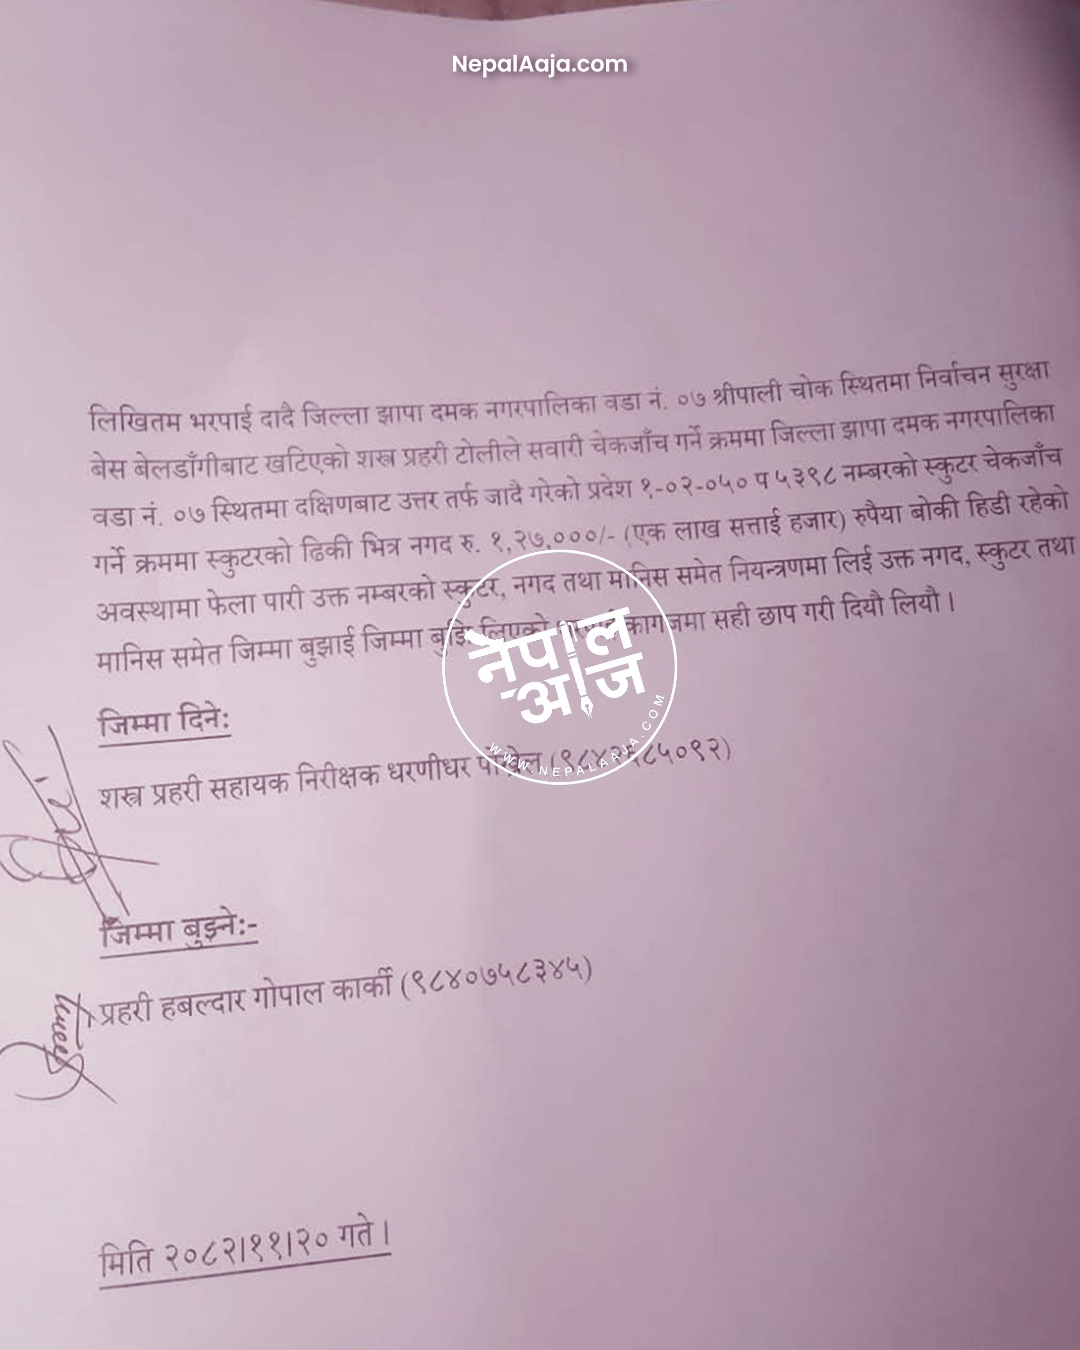 NepalAaja.com
लिखितम भरपाई दादै जिल्ला झापा दमक नगरपालिका वडा नं. ०७ श्रीपाली चोक स्थितमा निर्वाचन सुरक्षा
बेस बेलडाँगीबाट खटिएको शस्त्र प्रहरी टोलीले सवारी चेकजाँच गर्ने क्रममा जिल्ला झापा दमक नगरपालिका
वडा नं. ०७ स्थितमा दक्षिणबाट उत्तर तर्फ जादै गरेको प्रदेश १-०२-०५० प ५३९८ नम्बरको स्कुटर चेकजाँच
गर्ने क्रममा स्कुटरको ढिकी भित्र नगद रु. १,२७,०००/- (एक लाख सत्ताई हजार) रुपैया बोकी हिडी रहेको
अवस्थामा फेला पारी उक्त नम्बरको स्कुटर, नगद तथा मानिस समेत नियन्त्रणमा लिई उक्त नगद, स्कुटर तथा
मानिस समेत जिम्मा बुझाई जिम्मा बुझि लिएको कागजमा सही छाप गरी दियौ लियौ ।
नेपाल
आज
WWW.NEPALAAJA.COM
जिम्मा दिने:
शस्त्र प्रहरी सहायक निरीक्षक धरणीधर
जिम्मा बुझ्ने:-
प्रहरी हबल्दार गोपाल कार्की (९८४०७५८३४५)
मिति २०८२।११।२० गते ।